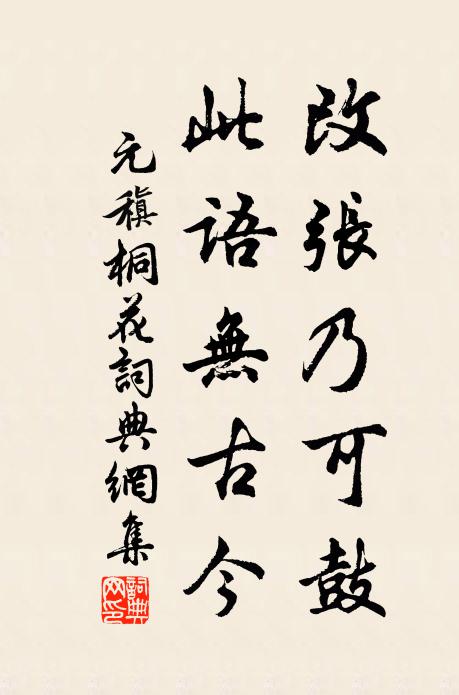 改張乃可鼓
此語無古今
元稹桐花詞典網集
詞典网印